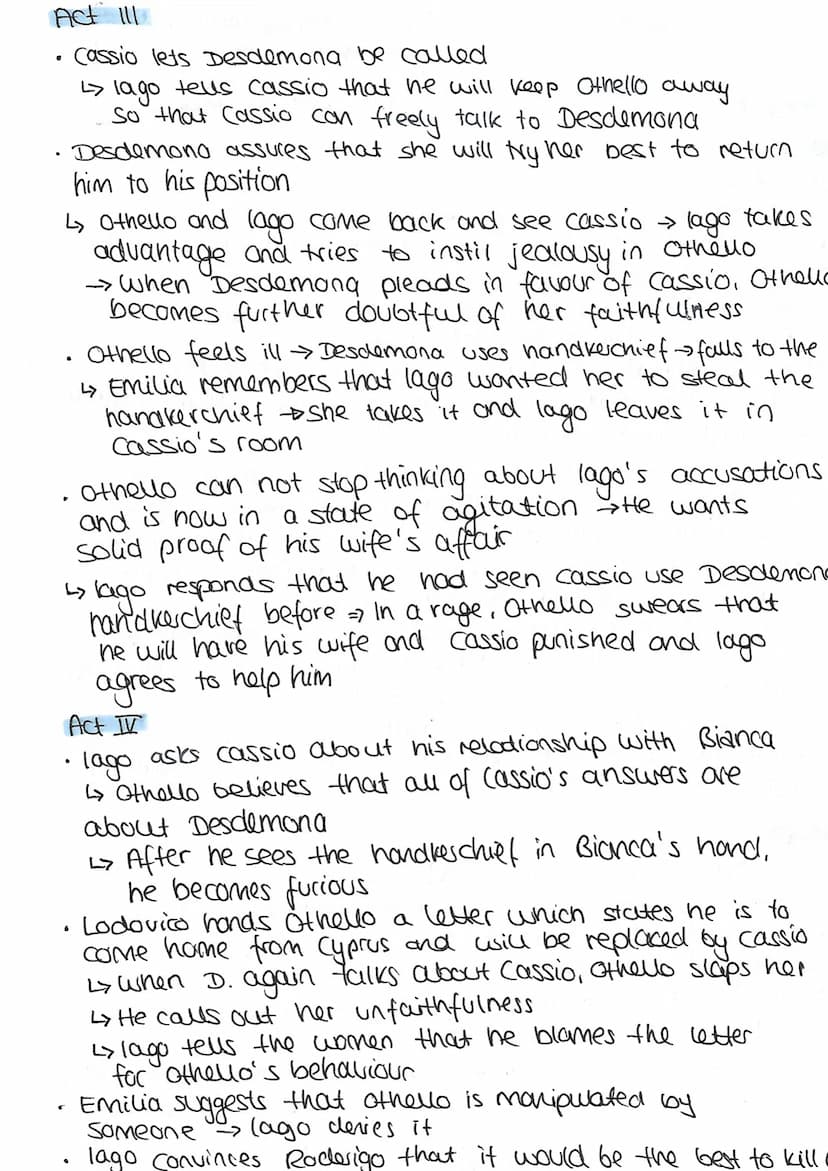 Act III
· Cassio lets Desdemona be called
↳ Iago tells Cassio that he will keep Othello away
so that Cassio can freely talk to Desdemona
· Desdemona assures that she will try her best to return
him to his position
↳ Othello and Iago come back and see Cassio → Iago takes
advantage and tries to instil jealousy in Othello
→ When Desdemona pleads in favour of Cassio, Othello
becomes further doubtful of her faithfulness
· Othello feels ill → Desdemona uses handkerchief → falls to the
↳ Emilia remembers that Iago wanted her to steal the
handkerchief → she takes it and Iago leaves it in
Cassio's room
· Othello can not stop thinking about Iago's accusations
and is now in a state of agitation → He wants
solid proof of his wife's affair
↳ Iago responds that he had seen Cassio use Desdemon
handkerchief before ⇒ In a rage, Othello swears that
he will have his wife and Cassio punished and Iago
agrees to help him
Act IV
· Iago asks Cassio about his relationship with Bianca
↳ Othello believes that all of Cassio's answers are
about Desdemona
↳ After he sees the handkerchief in Bianca's hand,
he becomes furious
· Lodovico hands Othello a letter which states he is to
come home from Cyprus and will be replaced by Cassio
↳ When D. again talks about Cassio, Othello slaps her
↳ He calls out her unfaithfulness
↳ Iago tells the women that he blames the letter
for Othello's behaviour
· Emilia suggests that Othello is manipulated by
someone → Iago denies it
· Iago convinces Roderigo that it would be the best to kill